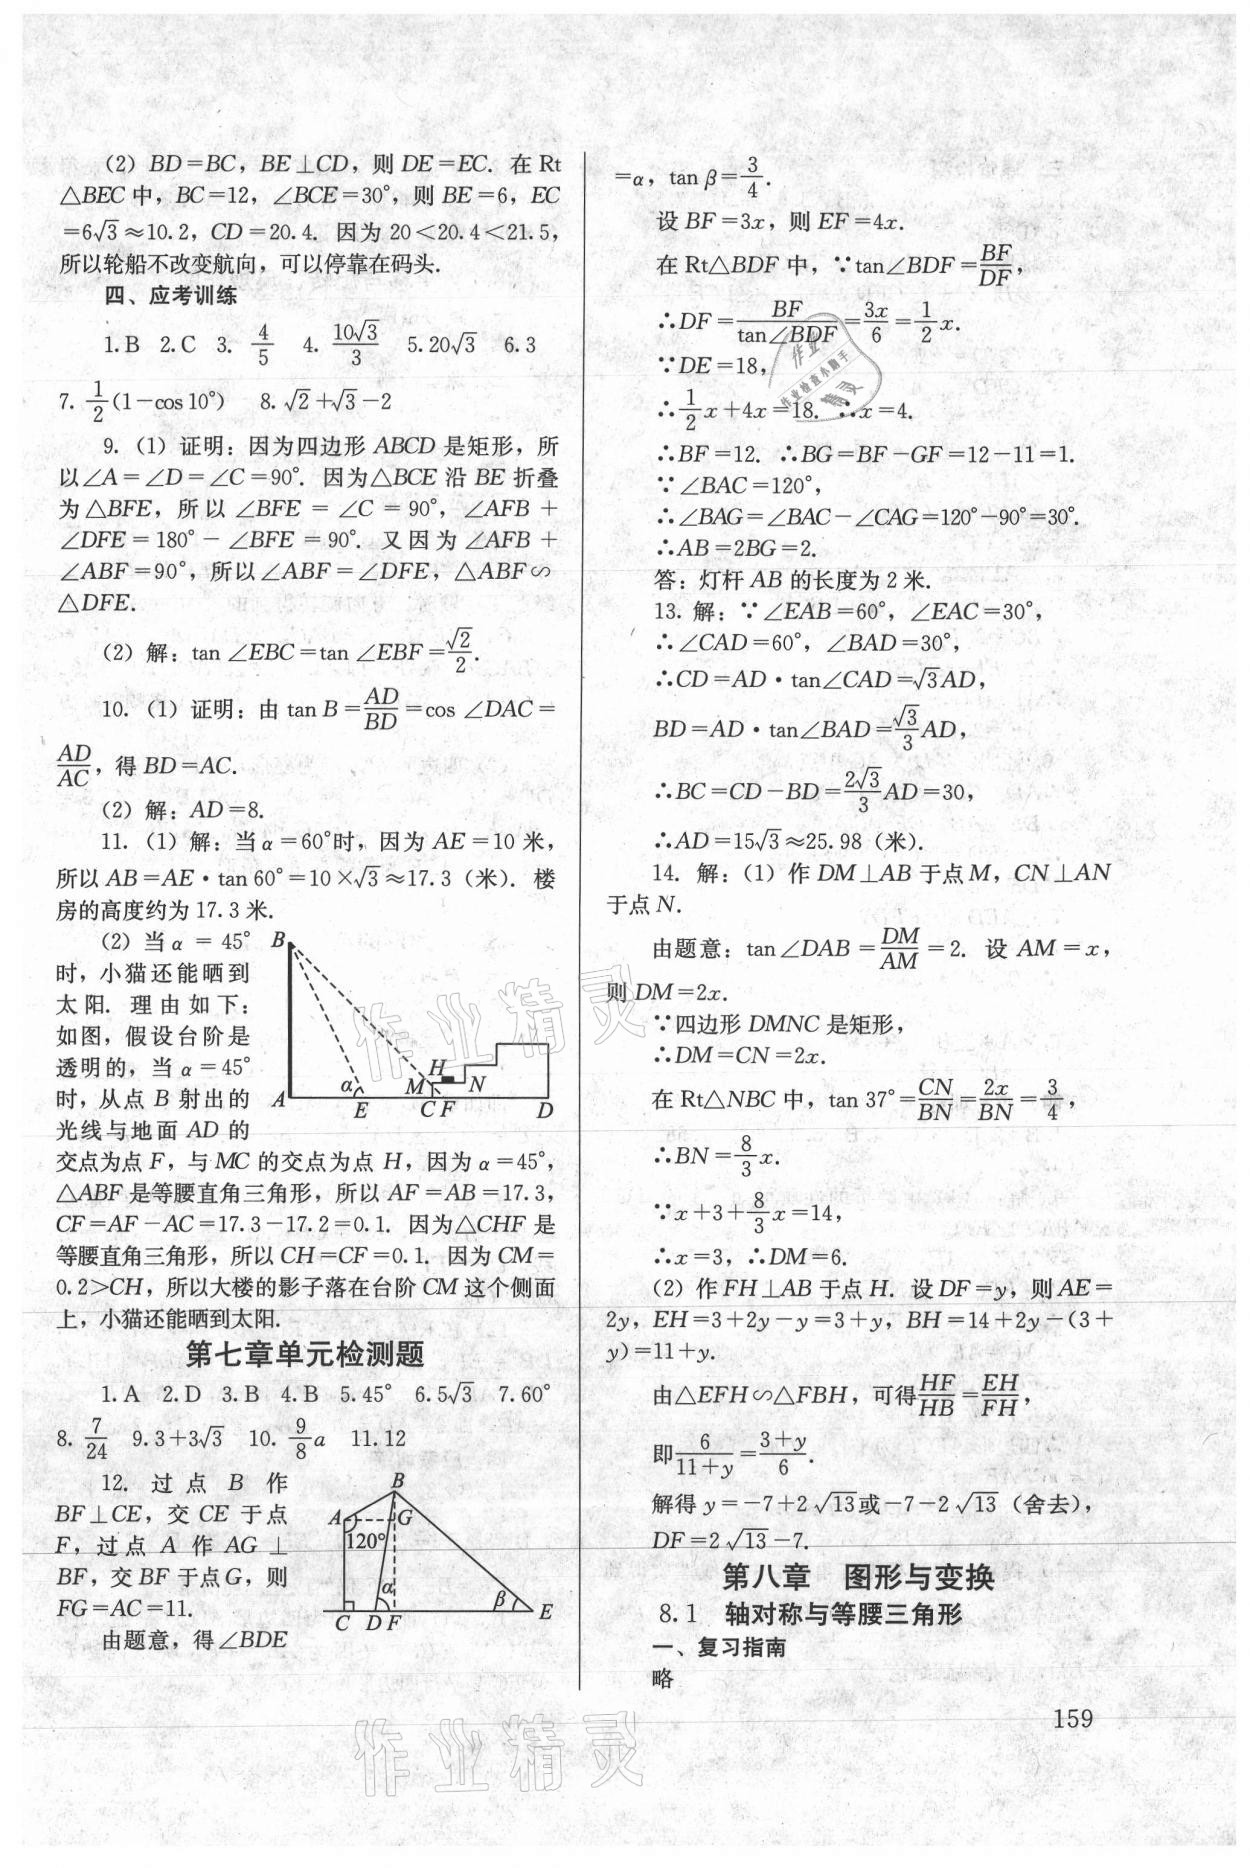 (2) BD=BC，BE⊥CD，则 DE=EC. 在 Rt
△BEC 中，BC=12，∠BCE=30°，则 BE=6，EC
=6√3≈10.2，CD=20.4. 因为 20<20.4<21.5，
所以轮船不改变航向，可以停靠在码头.
四、应考训练
1.B 2.C 3. 4/5 4. 10√3/3 5.20√3 6.3
7. 1/2(1-cos10°) 8.√2+√3-2
9. (1) 证明：因为四边形 ABCD 是矩形，所
以∠A=∠D=∠C=90°. 因为△BCE 沿 BE 折叠
为△BFE，所以 ∠BFE = ∠C = 90°，∠AFB +
∠DFE=180°-∠BFE=90°. 又因为∠AFB+
∠ABF=90°，所以∠ABF=∠DFE，△ABF∽
△DFE.
(2) 解：tan ∠EBC=tan ∠EBF=√2/2.
10. (1) 证明：由 tan B=AD/BD=cos ∠DAC=
AD/AC，得 BD=AC.
(2) 解：AD=8.
11. (1) 解：当α=60°时，因为 AE=10 米，
所以 AB=AE·tan 60°=10×√3≈17.3（米）. 楼
房的高度约为 17.3 米.
(2) 当 α = 45°
时，小猫还能晒到
太阳. 理由如下：
如图，假设台阶是
透明的，当 α=45°
时，从点 B 射出的
光线与地面 AD 的
B
H
α
M
N
A
E
C F
D
交点为点 F，与 MC 的交点为点 H，因为 α=45°，
△ABF 是等腰直角三角形，所以 AF=AB=17.3，
CF=AF-AC=17.3-17.2=0.1. 因为△CHF 是
等腰直角三角形，所以 CH=CF=0.1. 因为 CM=
0.2>CH，所以大楼的影子落在台阶 CM 这个侧面
上，小猫还能晒到太阳.
第七章单元检测题
1.A 2.D 3.B 4.B 5.45° 6.5√3 7.60°
8. 7/24 9.3+3√3 10. 9/8a 11.12
12. 过点 B 作
BF⊥CE，交 CE 于点
F，过点 A 作 AG ⊥
BF，交 BF 于点G，则
FG=AC=11.
由题意，得∠BDE
B
A
G
120°
α
β
C D F
E
=α，tan β=3/4.
设 BF=3x，则 EF=4x.
在 Rt△BDF 中，∵tan∠BDF=BF/DF，
∴DF=BF/tan∠BDF=3x/6=1/2x.
∵DE=18，
∴1/2x+4x=18. ∴x=4.
∴BF=12. ∴BG=BF-GF=12-11=1.
∵∠BAC=120°，
∴∠BAG=∠BAC-∠CAG=120°-90°=30°.
∴AB=2BG=2.
答：灯杆 AB 的长度为 2 米.
13. 解：∵∠EAB=60°，∠EAC=30°，
∴∠CAD=60°，∠BAD=30°，
∴CD=AD·tan∠CAD=√3AD，
BD=AD·tan∠BAD=√3/3AD，
∴BC=CD-BD=2√3/3AD=30，
∴AD=15√3≈25.98（米）.
14. 解：(1) 作 DM⊥AB 于点 M，CN⊥AN
于点 N.
由题意：tan∠DAB=DM/AM=2. 设 AM=x，
则 DM=2x.
∵四边形 DMNC 是矩形，
∴DM=CN=2x.
在 Rt△NBC 中，tan 37°=CN/BN=2x/BN=3/4，
∴BN=8/3x.
∵x+3+8/3x=14，
∴x=3，∴DM=6.
(2) 作 FH⊥AB 于点 H. 设 DF=y，则 AE=
2y，EH=3+2y-y=3+y，BH=14+2y-(3+
y)=11+y.
由△EFH∽△FBH，可得HF/HB=EH/FH，
即6/11+y=3+y/6.
解得 y=-7+2√13或-7-2√13（舍去），
DF=2√13-7.
第八章 图形与变换
8.1 轴对称与等腰三角形
一、复习指南
略
159
作业精灵
作业精灵
作业检查小助手
精灵